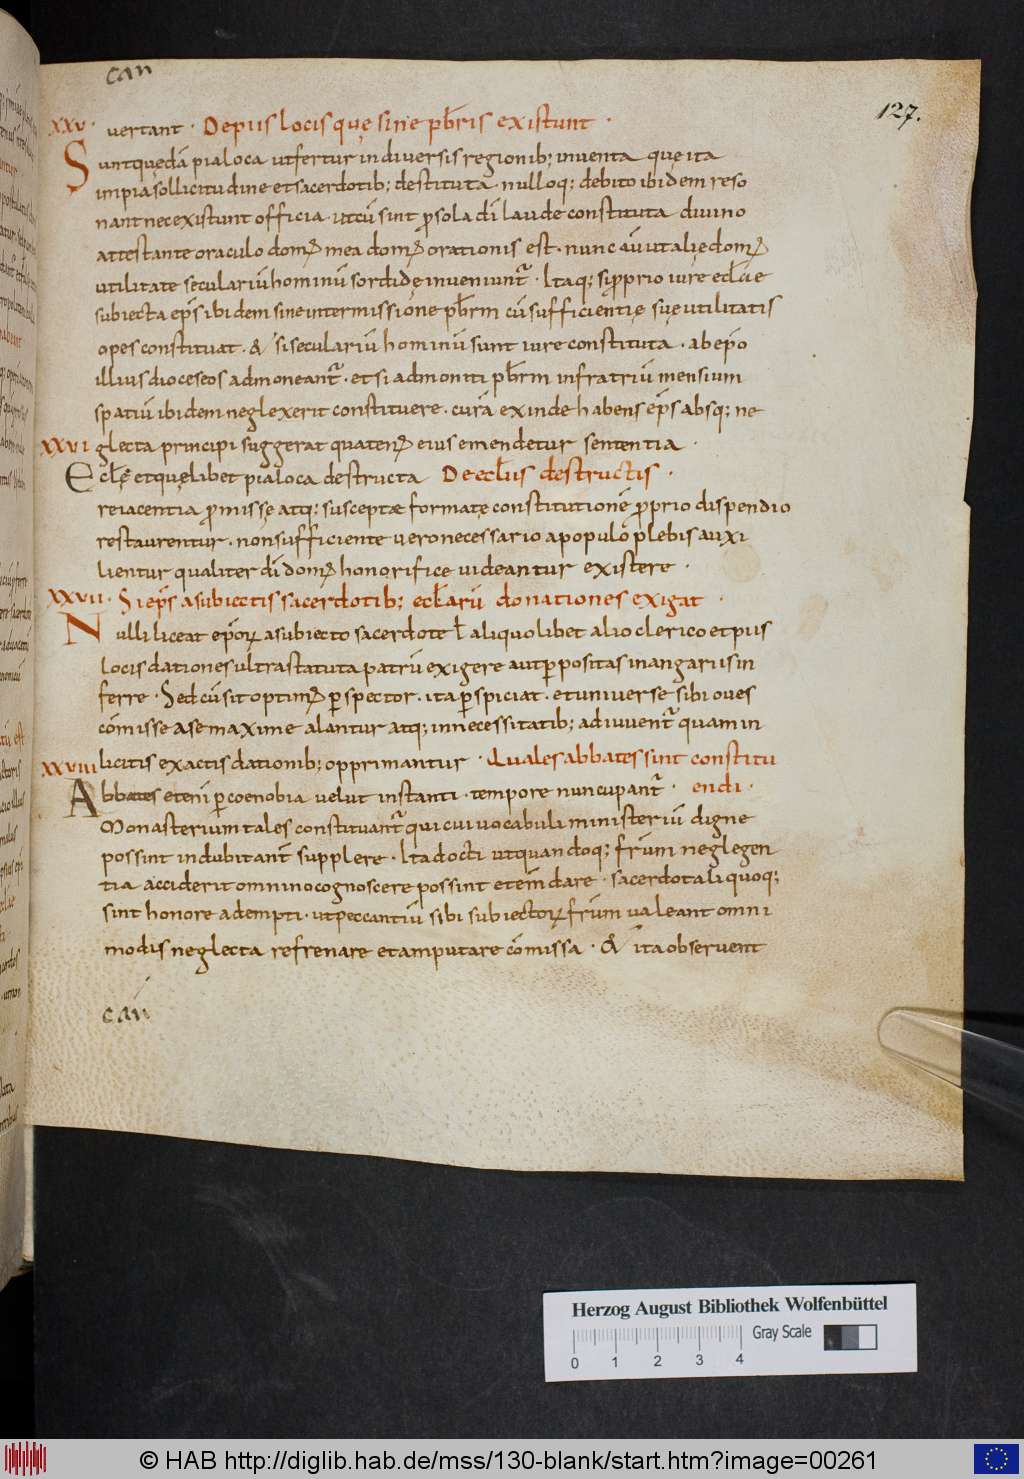 can
127.
XXV. vertant · De piis locis que sine pb̄ris existunt ·
Sunt quedā pia loca ut fertur in diversis regionib; inventa que ita
impia sollicitudine et sacerdotib; destituta · nulloq; debito ibidem reso
nant nec existunt officia · ut cū sint p̱ sola dī laude constituta divino
attestante oraculo domꝰ mea domꝰ orationis est · nunc aū ut alię domꝰ
utilitate seculariū hominū sordidę inveniunt᷑ · Itaq; si p̱prio iure ecl̄ie
subiecta ep̄s ibidem sine intermissione pb̄rm cū sufficientię suę utilitatis
opes constituat · & si seculariū hominū sunt iure constituta · ab ep̄o
illius dioceseos admoneant᷑ · et si admoniti pb̄rm infra triū mensium
spatiū ibidem neglexerit constituere · curā exinde habens ep̄s absq; ne
XXVI glecta principi suggerat quatenꝰ eius emendetur sententia ·
Ecl̄ę et quęlibet pia loca destructa De ecl̄iis destructis ·
reiacentia p̱missę atq; susceptae formatę constitutionē p̱prio dispendio
restaurentur · non sufficiente vero necessario a populo plebis auxi
lientur qualiter dī domꝰ honorifice videantur existere ·
XXVII · Si ep̄s a subiectis sacerdotib; ecl̄arū donationes exigat ·
Nulli liceat ep̄oꝝ a subiecto sacerdote ƚ aliquolibet alio clerico et piis
locis dationes ultra statuta patrū exigere aut p̱positas in angariis in
ferre · Sed cū sit optimꝰ p̱spector · ita p̱spiciat · et universe sibi oves
cōmisse a se maxime alantur atq; in necessitatib; adiuvent᷑ quam in
XXVIII licitis exactis dationib; opprimantur · Quales abbates sint constitu
Abbates etenī p̱ coenobia velut instanti · tempore nuncupant᷑ · endi ·
Monasterium tales constituant᷑ qui cui vocabuli ministeriū digne
possint indubitant᷑ supplere · Ita docti ut quandoq; fr̄um neglegen
tia acciderit omnino cognoscere possint et em̄dare · sacerdotali quoq;
sint honore adempti · ut peccantiū sibi subiectoꝝ fr̄um valeant omni
modis neglecta refrenare et amputare cōmissa · & ita observent
can
Herzog August Bibliothek Wolfenbüttel
Gray Scale
0 1 2 3 4
© HAB http://diglib.hab.de/mss/130-blank/start.htm?image=00261